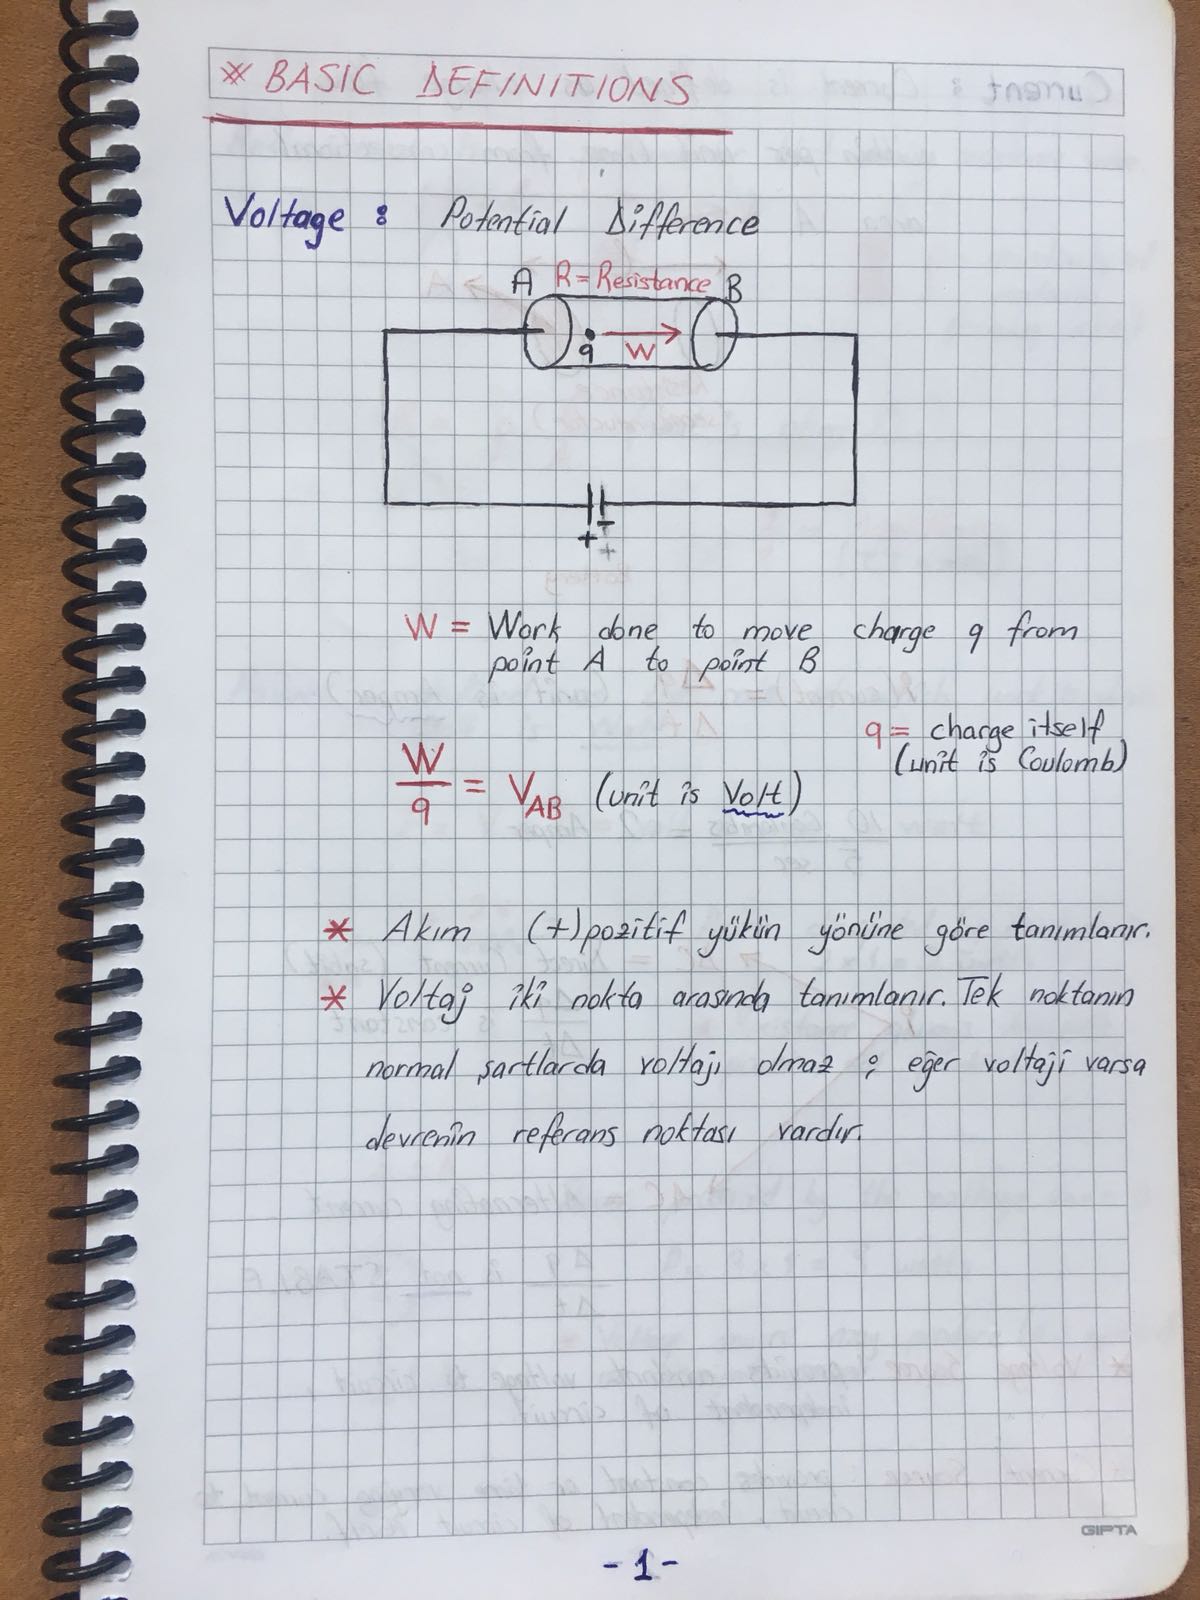 * BASIC DEFINITIONS
Voltage : Potential Difference
A R = Resistance B
q W
+ -
+
W = Work done to move charge q from
point A to point B
q = charge itself
(unit is Coulomb)
W/q = VAB (unit is Volt)
* Akım (+) pozitif yükün yönüne göre tanımlanır.
* Voltaj iki nokta arasında tanımlanır. Tek noktanın
normal şartlarda voltajı olmaz ; eğer voltaji varsa
devrenin referans noktası vardır.
GIPTA
- 1 -